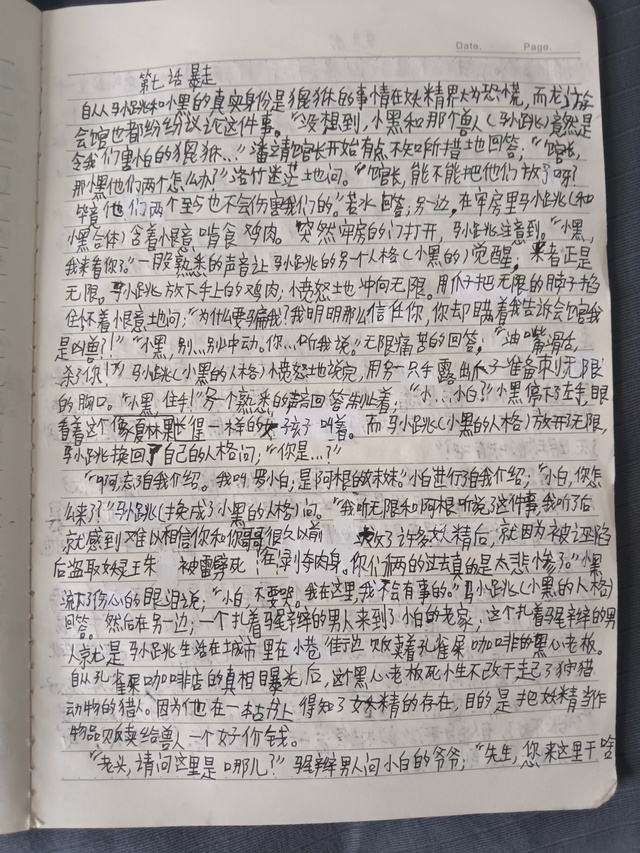 Date.    Page.
第七话 暴走
自从马小跳和小黑的真实身份是猊猀的事情在妖精界大为恐慌，而龙游
会馆也都纷纷议论这件事。“没想到，小黑和那个兽人（马小跳）竟然是
令我们害怕的猊猀…”潘靖馆长开始有点不知所措地回答；“馆长，
那黑他们两个怎么办？”洛竹迷茫地问。“馆长，能不能把他们放了呀？
毕竟他们两个至今也不会伤害我们的。”若水回答；另一边，在牢房里马小跳（和
小黑合体）含着恨意啃食鸡肉。突然牢房的门打开，马小跳注意到。“小黑，
我来看你。”一股熟悉的声音让马小跳的另个人格（小黑的）觉醒；来者正是
无限。马小跳放下手上的鸡肉，愤怒地冲向无限。用爪子把无限的脖子掐
住怀着恨意地问；“为什么要骗我？我明明那么信任你，你却瞒着我告诉会馆我
是凶兽？！”“小黑，别…别冲动。你…听我说。”无限痛苦的回答；“油嘴滑舌，
杀了你！”马小跳（小黑的人格）愤怒地说完，用另一只手露出爪子准备刺无限
的胸口。“小黑，住手！”另个熟悉的声音回答制止着；“小…小白？”小黑停下左手，眼
看着这个像夏林果长得一样的女孩子叫着。而马小跳（小黑的人格）放开无限，
马小跳换回了自己的人格问；“你是…？”
“啊，忘自我介绍。我叫罗小白；是阿根的妹妹。”小白进行自我介绍；“小白，你怎
么来了？”马小跳（换成了小黑的人格）问。“我听无限和阿根听说了这件事，我听了后
就感到难以相信你和你哥哥很久以前 救了许多妖精后，就因为被诬陷
后盗取妖灵王朱 被雷劈死 在绿刂夺肉身。你们俩的过去真的是太悲惨了。”小黑
流下了伤心的眼泪说；“小白，不要哭。我在这里，我不会有事的。”马小跳（小黑的人格）
回答。然后在另一边；一个扎着马尾辫的男人来到了小白的老家；这个扎着马尾辫的男
人就是马小跳生活在城市里在小巷街边贩卖着孔雀屎咖啡的黑心老板。
自从孔雀屎咖啡店的真相曝光后，这个黑心老板死小生不改干起了狩猎
动物的猎人。因为他在一本古书上得知了妖精的存在，目的是把妖精当作
物品贩卖给兽人一个好价钱。
“老头，请问这里是哪儿？”马尾辫男人问小白的爷爷；“先生，您来这里干啥